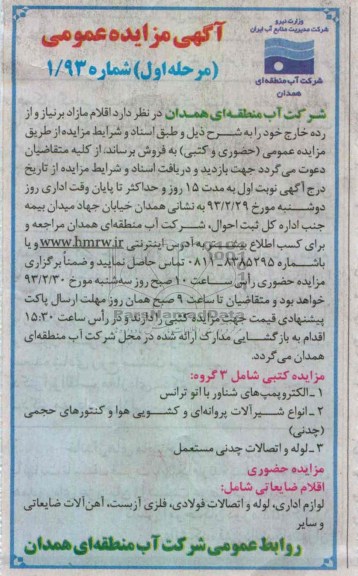 وزارت نیرو
شرکت مدیریت منابع آب ایران
شرکت آب منطقه‌ای
همدان
آگهی مزایده عمومی
(مرحله اول) شماره ۱/۹۳
شرکت آب منطقه‌ای همدان در نظر دارد اقلام مازاد بر نیاز و از
رده خارج خود را به شرح ذیل و طبق اسناد و شرایط مزایده از طریق
مزایده عمومی (حضوری و کتبی) به فروش برساند. از کلیه متقاضیان
دعوت می‌گردد جهت بازدید و دریافت اسناد و شرایط مزایده از تاریخ
درج آگهی نوبت اول به مدت ۱۵ روز و حداکثر تا پایان وقت اداری روز
دوشنبه مورخ ۹۳/۲/۲۹ به نشانی همدان خیابان جهاد میدان بیمه
جنب اداره کل ثبت احوال، شرکت آب منطقه‌ای همدان مراجعه و
برای کسب اطلاع بیشتر به آدرس اینترنتی www.hmrw.ir و یا
باشماره ۸۲۸۵۲۹۵-۰۸۱۱ تماس حاصل نمایید و ضمناً برگزاری
مزایده حضوری رأس ساعت ۱۰ صبح روز سه‌شنبه مورخ ۹۳/۲/۳۰
خواهد بود و متقاضیان تا ساعت ۹ صبح همان روز مهلت ارسال پاکت
پیشنهادی قیمت جهت مزایده کتبی را دارند و در رأس ساعت ۱۵:۳۰
اقدام به بازگشایی مدارک ارائه شده در محل شرکت آب منطقه‌ای
همدان می‌گردد.
مزایده کتبی شامل ۳ گروه:
۱ـ الکتروپمپ‌های شناور با اتو ترانس
۲ـ انواع شیرآلات پروانه‌ای و کشویی هوا و کنتورهای حجمی
(چدنی)
۳ـ لوله و اتصالات چدنی مستعمل
مزایده حضوری
اقلام ضایعاتی شامل:
لوازم اداری، لوله و اتصالات فولادی، فلزی آزبست، آهن‌آلات ضایعاتی
و سایر
روابط عمومی شرکت آب منطقه‌ای همدان